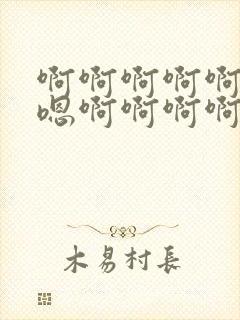 啊啊啊啊啊
嗯啊啊啊啊
木易村长